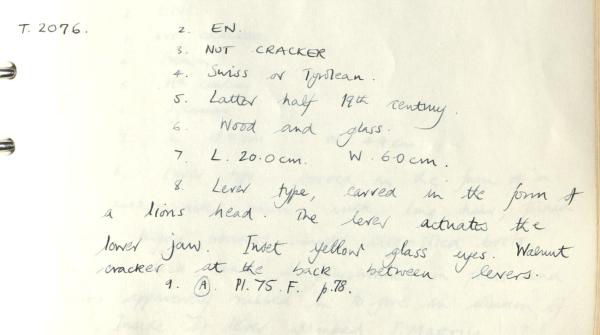 T. 2076. 2. EN.
3. NUT CRACKER
4. Swiss or Tyrolean.
5. Latter half 19th century.
6. Wood and glass.
7. L. 20.0cm. W. 6.0cm.
8. Lever type, carved in the form of
a lions head. The lever actuates the
lower jaw. Inset yellow glass eyes. Walnut
cracker at the back between levers.
9. (A). Pl. 75. F. p.78.